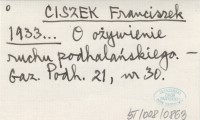 CISZEK Franciszek
1933... O ożywienie
ruchu podhalańskiego. —
Gaz. Podh. 21, nr 30.
BJ/008/0853